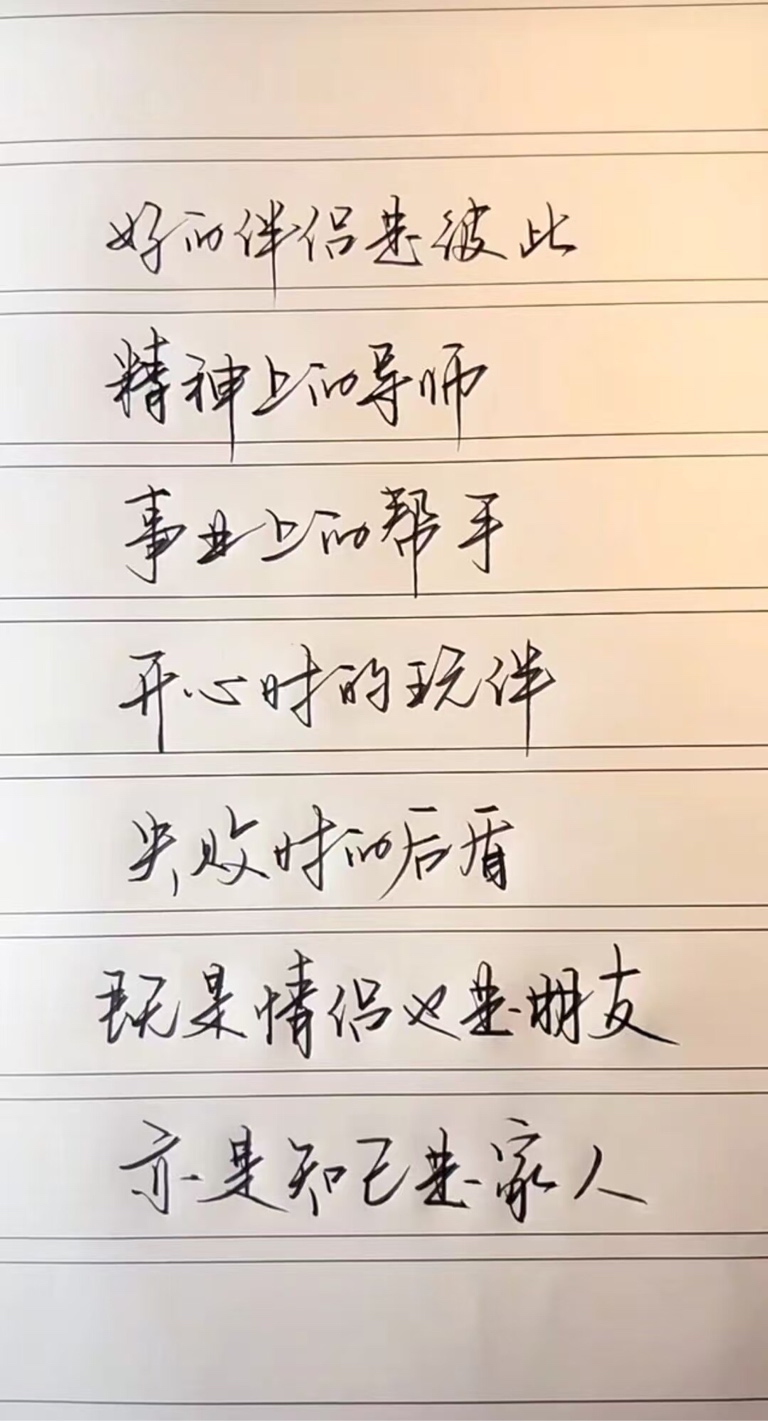 好的伴侣是彼此
精神上的导师
事业上的帮手
开心时的玩伴
失败时的后盾
既是情侣也是朋友
亦是知己是家人